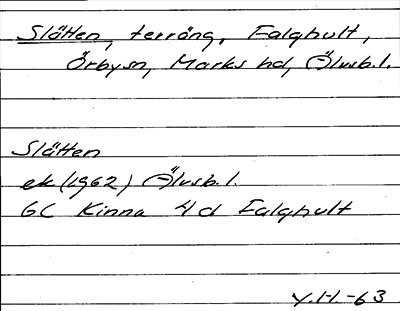 Slätten, terräng, Falghult,
Örbysn, Marks hd, Älvsb.l.
Slätten
ek (1962) Älvsb.l.
6C Kinna 4d Falghult
Y.H.-63